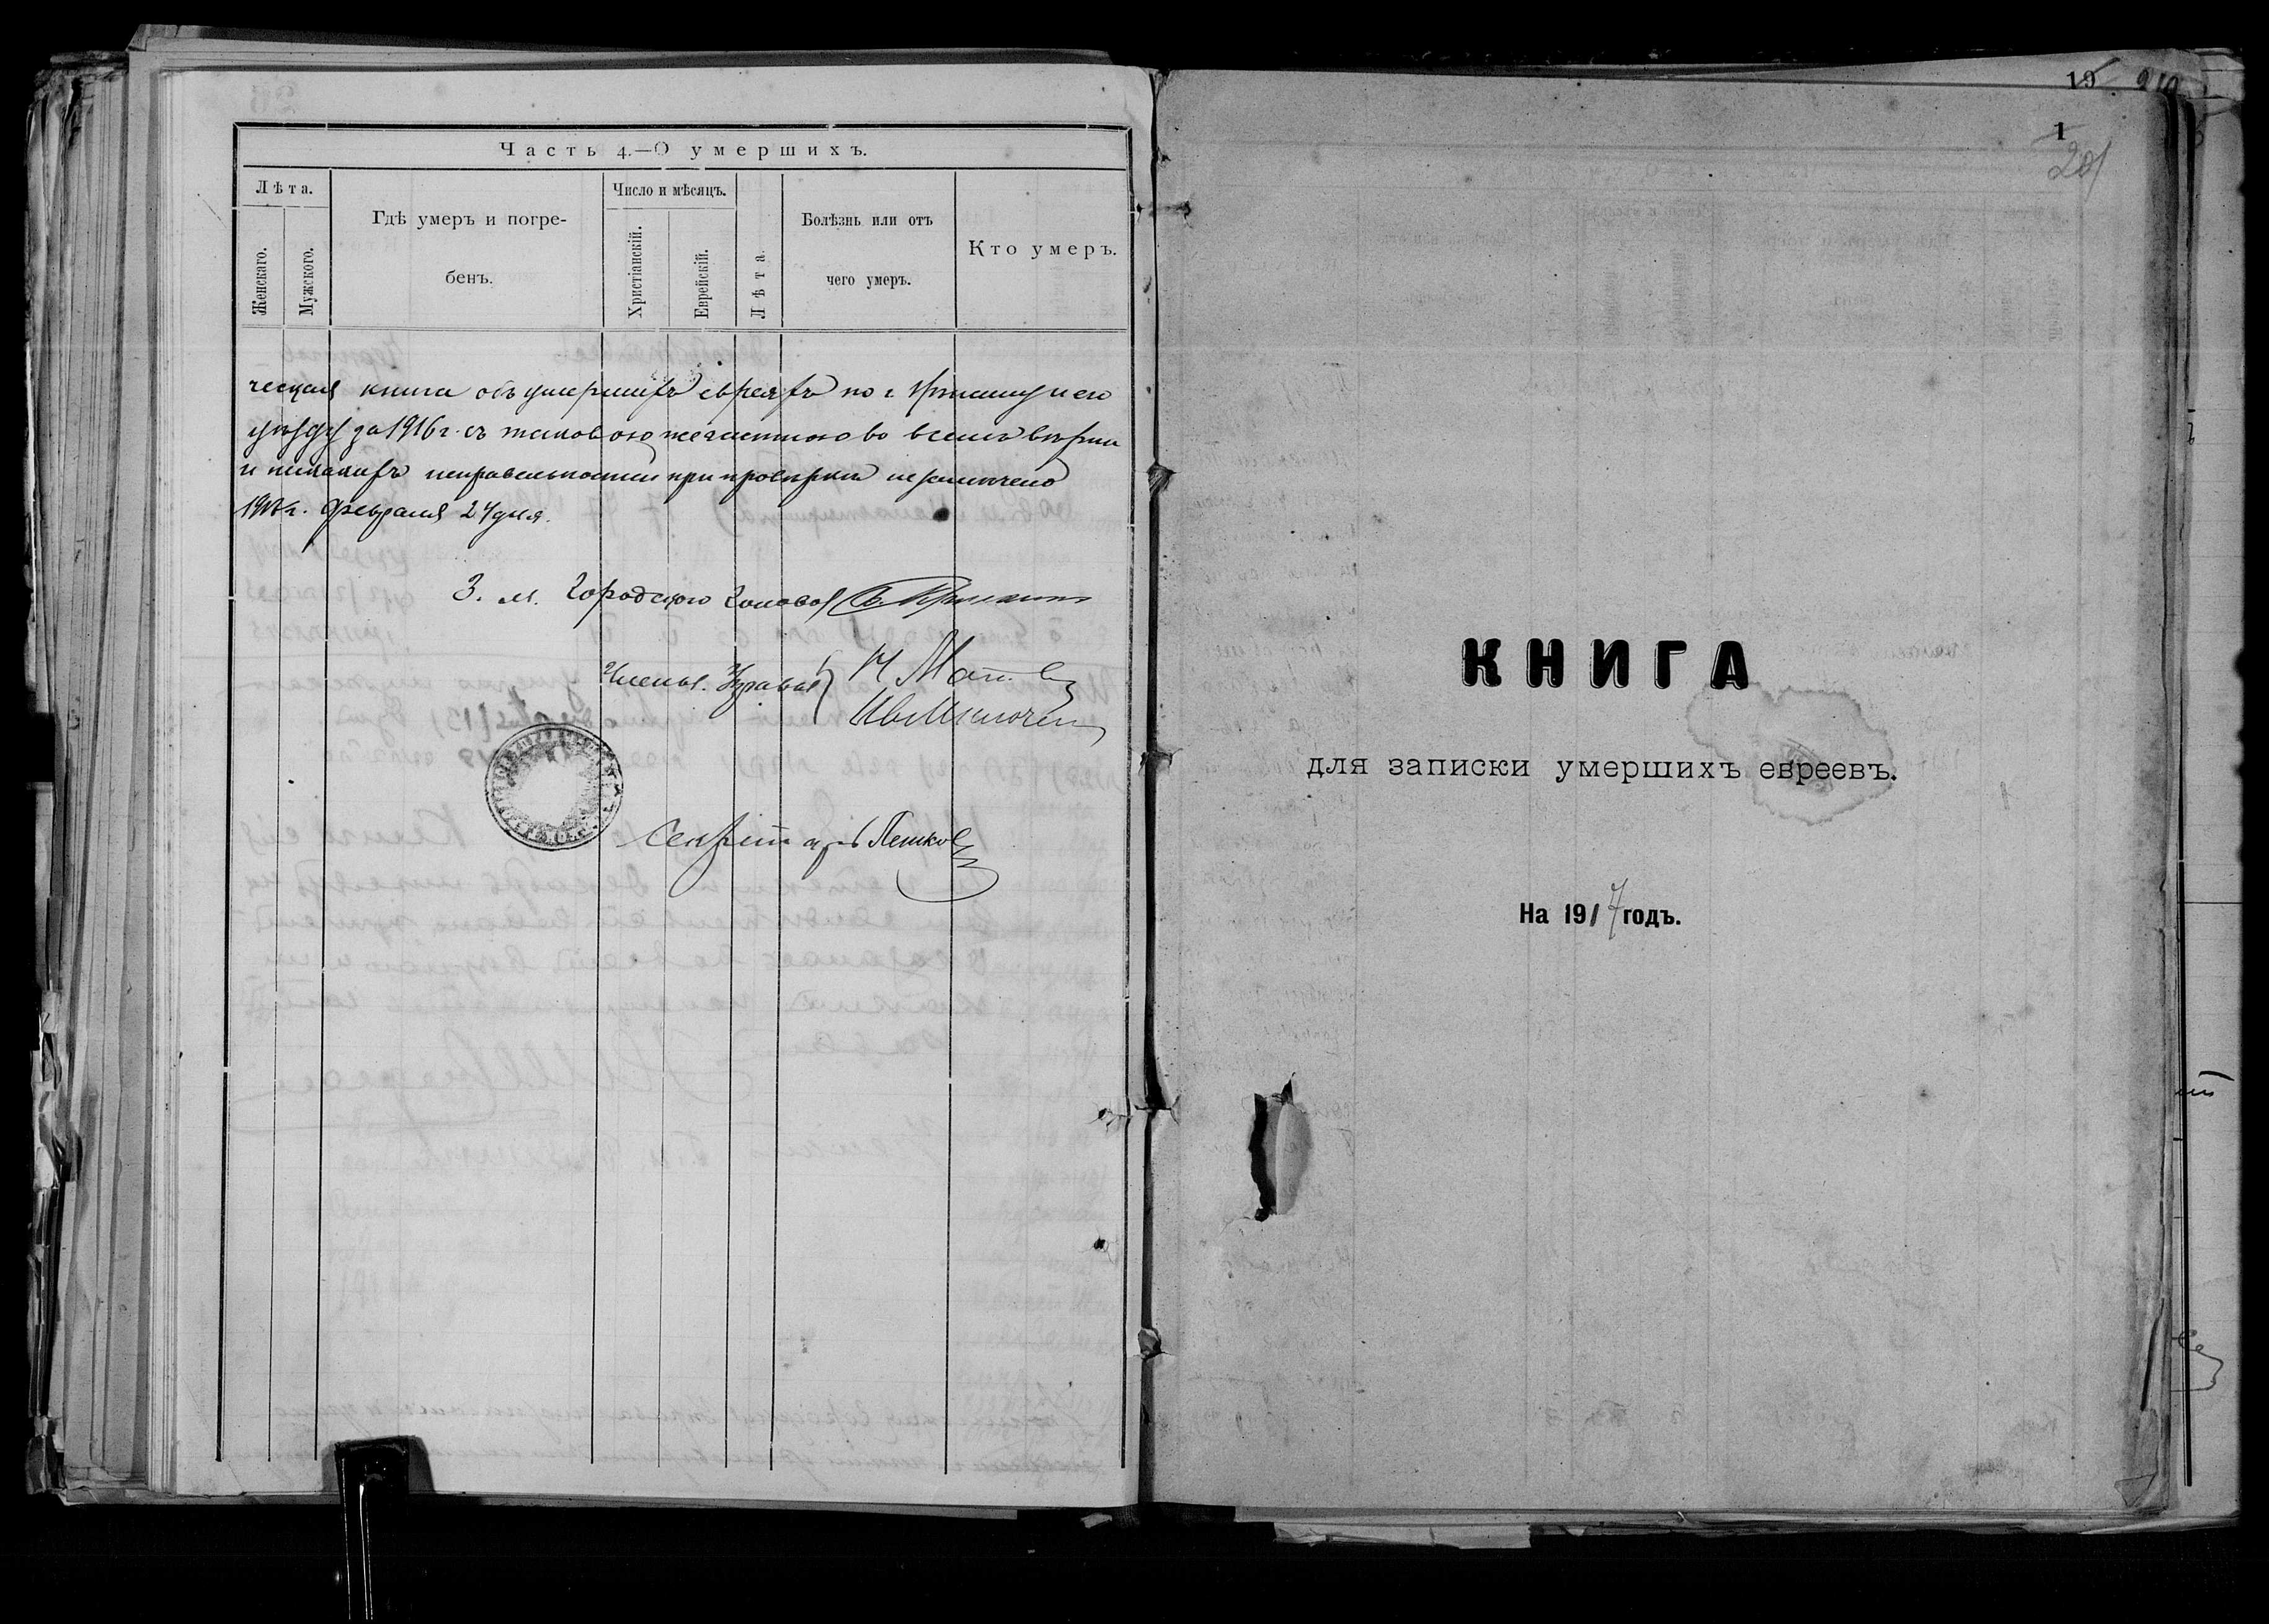 Часть 4.—О умершихъ.
Лѣта.
Женскаго.
Мужского.
Гдѣ умеръ и погре-
бенъ.
Число и мѣсяцъ.
Христіанскій.
Еврейскій.
Лѣта.
Болѣзнь или отъ
чего умеръ.
Кто умеръ.
ческая книга объ умершихъ евреяхъ по г. и его
уѣзду за 1916 г. съ таковою же частию во всемъ вѣрна
и никакихъ неправельностей при провѣркѣ не замѣчено
Февраля 24 дня.
З. м. Городского Головы
Члены Управы
Секретарь Пешков
19
1
201
КНИГА
для записки умершихъ евреевъ.
На 1917 годъ.